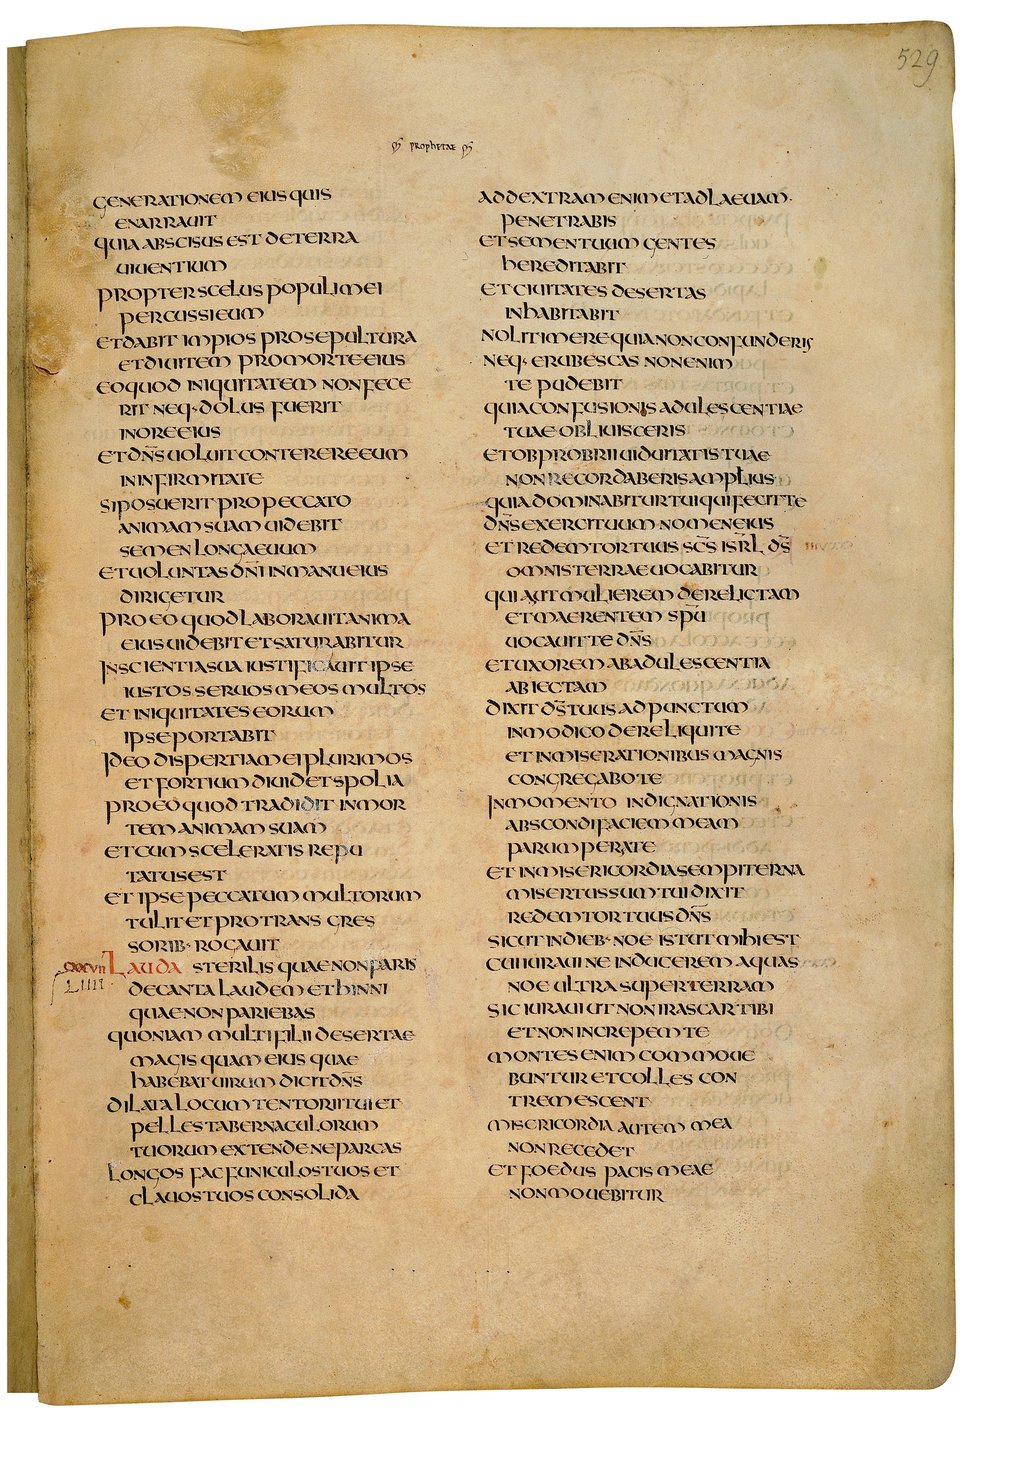 529
prophetae
GENERATIONEM EIUS QUIS
ENARRAUIT
QUIA ABSCISUS EST DE TERRA
UIUENTIUM
PROPTER SCELUS POPULI MEI
PERCUSSI EUM
ET DABIT IMPIOS PRO SEPULTURA
ET DIUITEM PRO MORTE EIUS
EO QUOD INIQUITATEM NON FECE
RIT NEQ· DOLUS FUERIT
IN ORE EIUS
ET DN̄S UOLUIT CONTERERE EUM
IN INFIRMITATE
SI POSUERIT PRO PECCATO
ANIMAM SUAM UIDEBIT
SEMEN LONGAEUUM
ET UOLUNTAS DN̄I IN MANU EIUS
DIRIGETUR
PRO EO QUOD LABORAUIT ANIMA
EIUS UIDEBIT ET SATURABITUR
IN SCIENTIA SUA IUSTIFICAUIT IPSE
IUSTOS SERUOS MEOS MULTOS
ET INIQUITATES EORUM
IPSE PORTABIT
IDEO DISPERTIAM EI PLURIMOS
ET FORTIUM DIUIDET SPOLIA
PRO EO QUOD TRADIDIT IN MOR
TEM ANIMAM SUAM
ET CUM SCELERATIS REPU
TATUS EST
ET IPSE PECCATUM MULTORUM
TULIT ET PRO TRANSGRES
SORIB· ROGAUIT
LAUDA STERILIS QUAE NON PARIS
LIIII· DECANTA LAUDEM ET HINNI
QUAE NON PARIEBAS
QUONIAM MULTI FILII DESERTAE
MAGIS QUAM EIUS QUAE
HABEBAT UIRUM DICIT DN̄S
DILATA LOCUM TENTORII TUI ET
PELLES TABERNACULORUM
TUORUM EXTENDE NE PARCAS
LONGOS FAC FUNICULOS TUOS ET
CLAUOS TUOS CONSOLIDA
AD DEXTRAM ENIM ET AD LAEUAM·
PENETRABIS
ET SEMEN TUUM GENTES
HEREDITABIT
ET CIUITATES DESERTAS
INHABITABIT
NOLI TIMERE QUIA NON CONFUNDERIS
NEQ· ERUBESCAS NON ENIM
TE PUDEBIT
QUIA CONFUSIONIS ADULESCENTIAE
TUAE OBLIUISCERIS
ET OBPROBRII UIDUITATIS TUAE
NON RECORDABERIS AMPLIUS
QUIA DOMINABITUR TUI QUI FECIT TE
DN̄S EXERCITUUM NOMEN EIUS
ET REDEMTOR TUUS SC̄S ISRL̄ DS̄
OMNIS TERRAE UOCABITUR
QUIA UT MULIEREM DERELICTAM
ET MAERENTEM SPŪ
UOCAUIT TE DN̄S
ET UXOREM AB ADULESCENTIA
ABIECTAM
DIXIT DS̄ TUUS AD PUNCTUM
IN MODICO DERELIQUI TE
ET IN MISERATIONIBUS MAGNIS
CONGREGABO TE
IN MOMENTO INDIGNATIONIS
ABSCONDI FACIEM MEAM
PARUMPER A TE
ET IN MISERICORDIA SEMPITERNA
MISERTUS SUM TUI DIXIT
REDEMTOR TUUS DN̄S
SICUT IN DIEB· NOE ISTUT MIHI EST
CUI IURAUI NE INDUCEREM AQUAS
NOE ULTRA SUPER TERRAM
SIC IURAUI UT NON IRASCAR TIBI
ET NON INCREPEM TE
MONTES ENIM COMMOUE
BUNTUR ET COLLES CON
TREMESCENT
MISERICORDIA AUTEM MEA
NON RECEDET
ET FOEDUS PACIS MEAE
NON MOUEBITUR